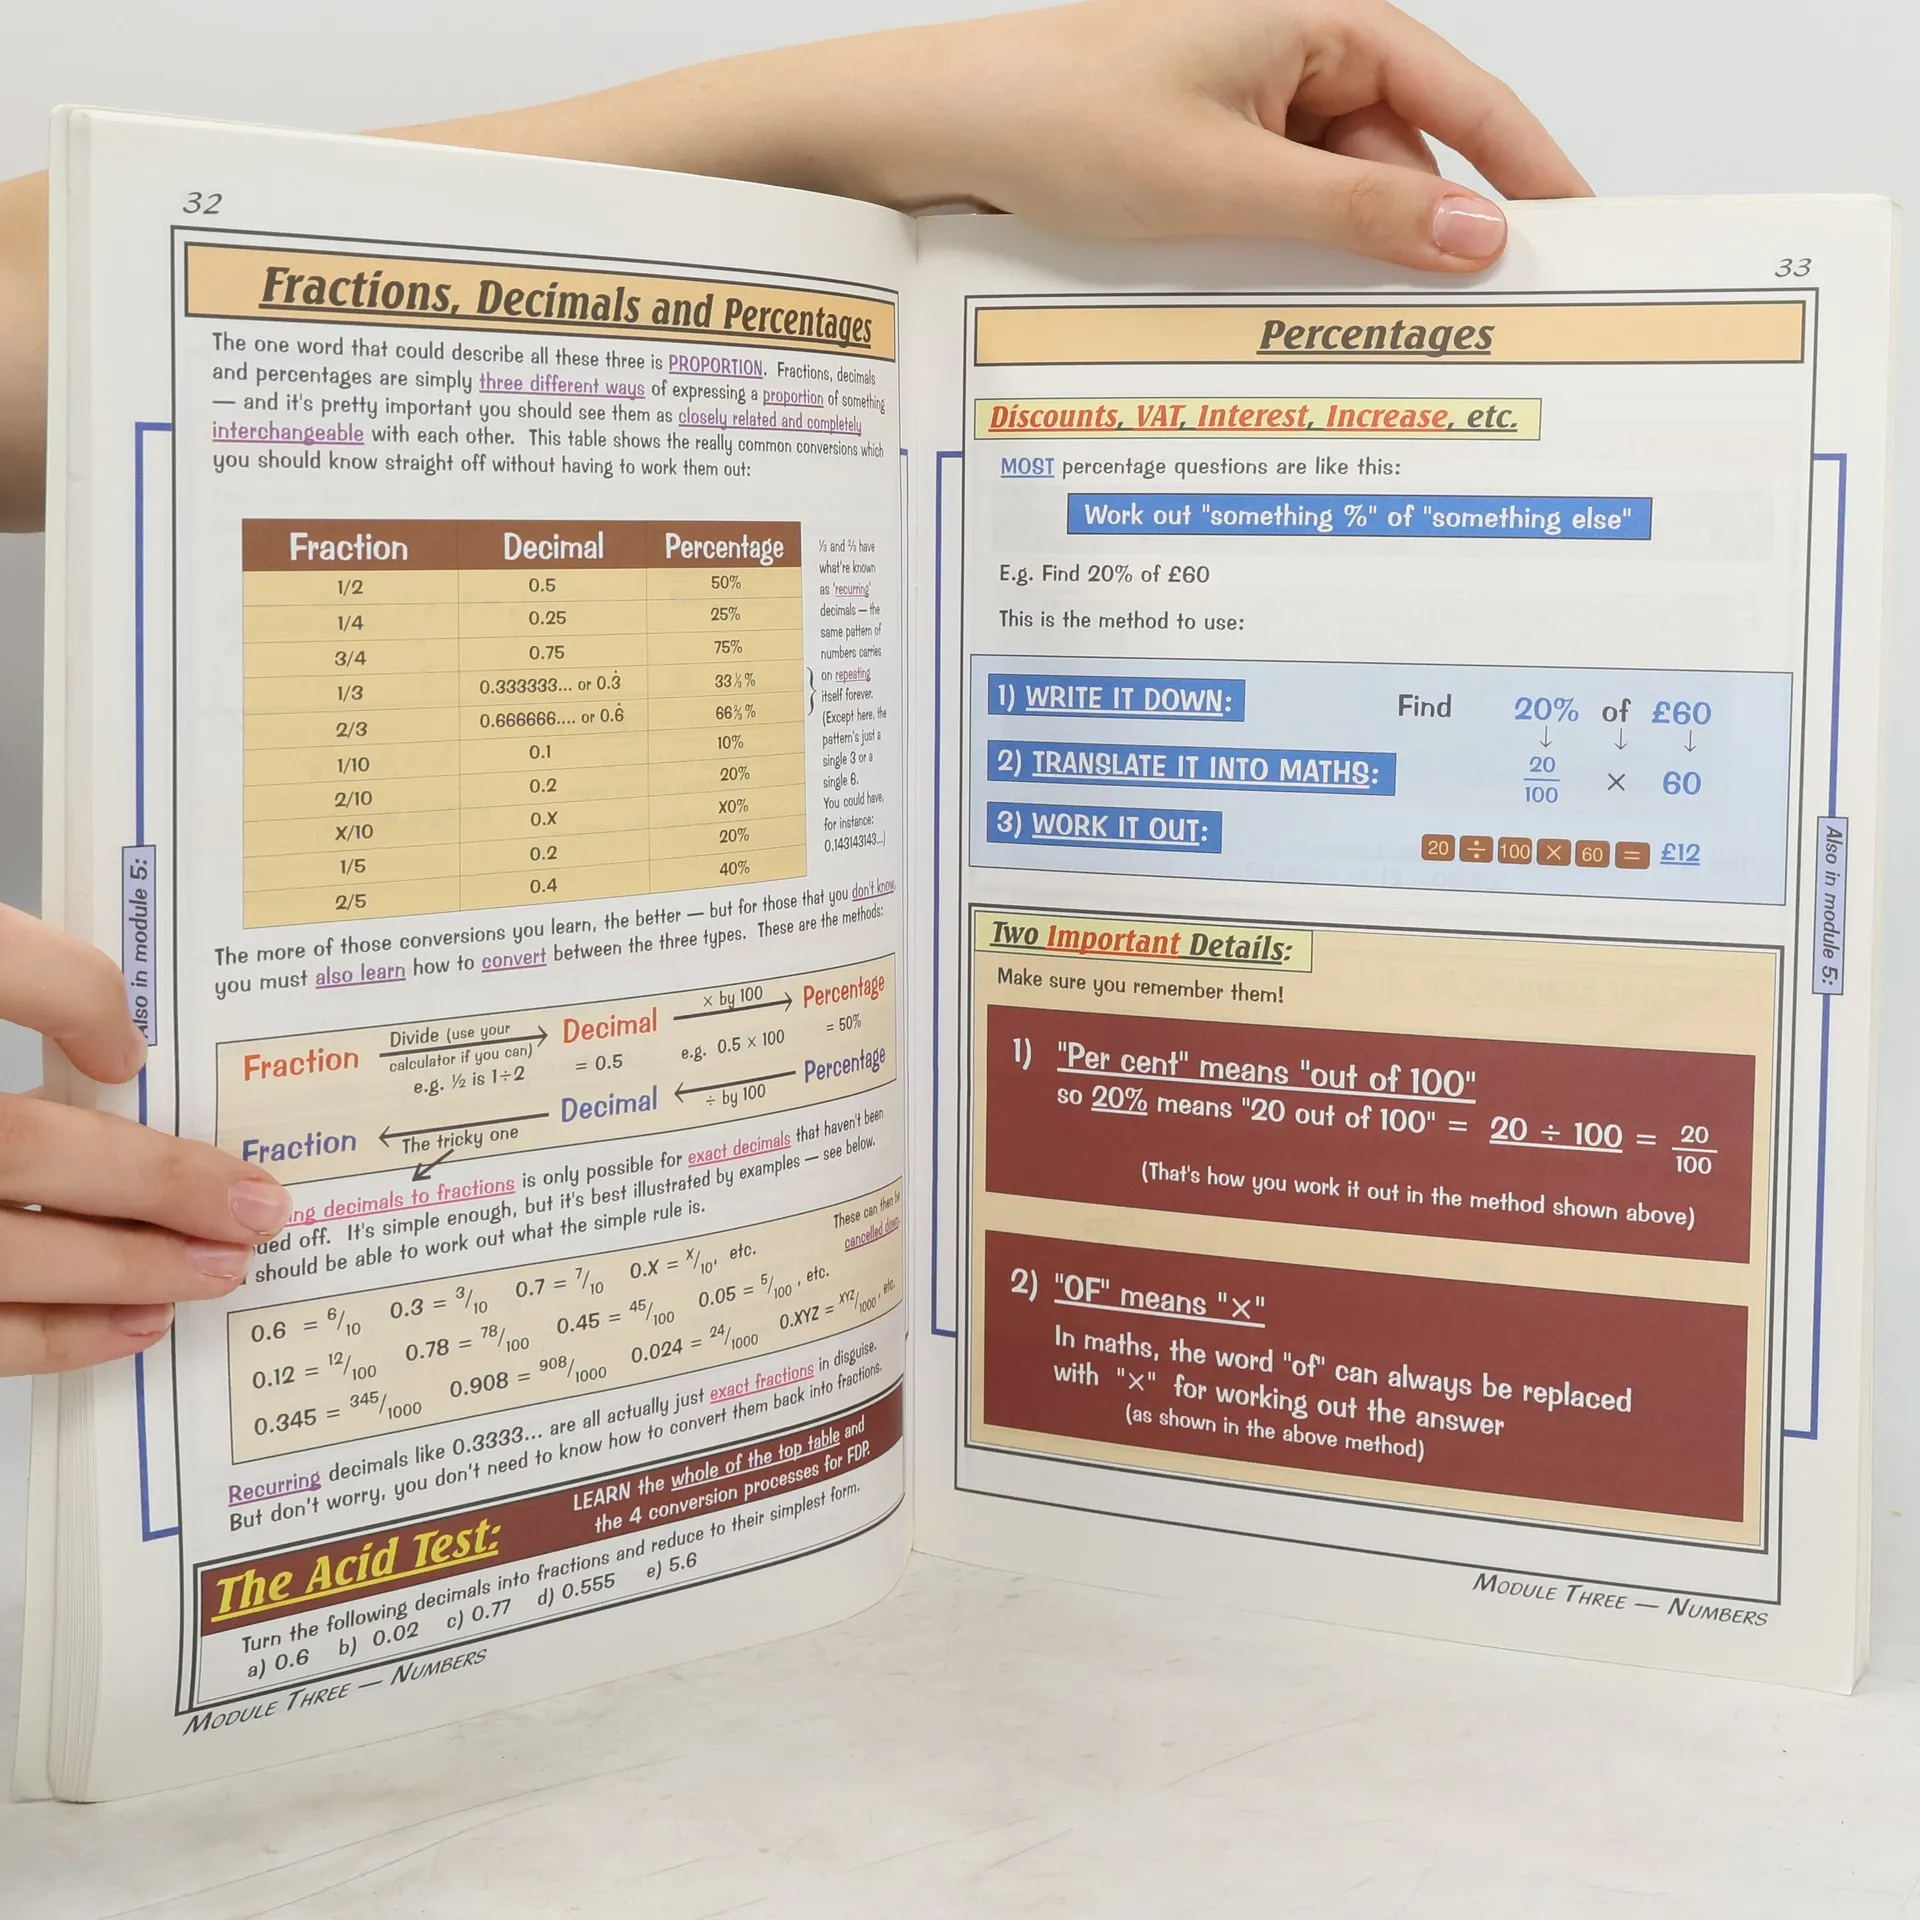 32
Fractions, Decimals and Percentages
The one word that could describe all these three is PROPORTION. Fractions, decimals
and percentages are simply three different ways of expressing a proportion of something
— and it's pretty important you should see them as closely related and completely
interchangeable with each other. This table shows the really common conversions which
you should know straight off without having to work them out:
Fraction Decimal Percentage
1/2 0.5 50%
1/4 0.25 25%
3/4 0.75 75%
1/3 0.333333... or 0.3̇ 33⅓%
2/3 0.666666.... or 0.6̇ 66⅔%
1/10 0.1 10%
2/10 0.2 20%
X/10 0.X X0%
1/5 0.2 20%
2/5 0.4 40%
⅓ and ⅔ have
what're known
as 'recurring'
decimals — the
same pattern of
numbers carries
on repeating
itself forever.
(Except here, the
pattern's just a
single 3 or a
single 6.
You could have,
for instance:
0.143143143...)
The more of those conversions you learn, the better — but for those that you don't know,
you must also learn how to convert between the three types. These are the methods:
Fraction Divide (use your calculator if you can) Decimal × by 100 Percentage
e.g. ½ is 1÷2 = 0.5 e.g. 0.5 × 100 = 50%
Fraction The tricky one Decimal ÷ by 100 Percentage
decimals to fractions is only possible for exact decimals that haven't been
off. It's simple enough, but it's best illustrated by examples — see below.
should be able to work out what the simple rule is.
0.6 = 6/10 0.3 = 3/10 0.7 = 7/10 0.X = X/10, etc.
0.12 = 12/100 0.78 = 78/100 0.45 = 45/100 0.05 = 5/100, etc.
0.345 = 345/1000 0.908 = 908/1000 0.024 = 24/1000 0.XYZ = XYZ/1000, etc.
These can then be
cancelled down.
Recurring decimals like 0.3333... are all actually just exact fractions in disguise.
But don't worry, you don't need to know how to convert them back into fractions.
The Acid Test:
LEARN the whole of the top table and
the 4 conversion processes for FDP.
Turn the following decimals into fractions and reduce to their simplest form.
a) 0.6 b) 0.02 c) 0.77 d) 0.555 e) 5.6
MODULE THREE — NUMBERS
Also in module 5:
33
Percentages
Discounts, VAT, Interest, Increase, etc.
MOST percentage questions are like this:
Work out "something %" of "something else"
E.g. Find 20% of £60
This is the method to use:
1) WRITE IT DOWN: Find 20% of £60
2) TRANSLATE IT INTO MATHS: 20/100 × 60
3) WORK IT OUT: 20 ÷ 100 × 60 = £12
Two Important Details:
Make sure you remember them!
1) "Per cent" means "out of 100"
so 20% means "20 out of 100" = 20 ÷ 100 = 20/100
(That's how you work it out in the method shown above)
2) "OF" means "×"
In maths, the word "of" can always be replaced
with "×" for working out the answer
(as shown in the above method)
Also in module 5:
MODULE THREE — NUMBERS